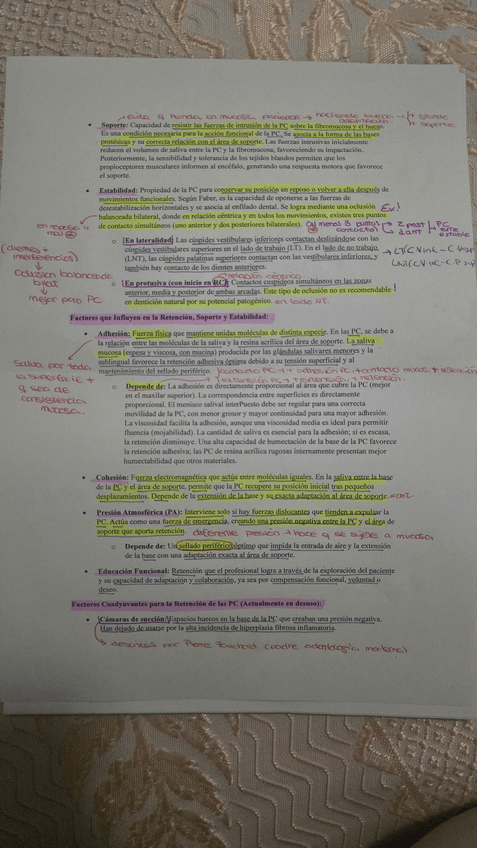 • Soporte: Capacidad de resistir las fuerzas de intrusión de la PC sobre la fibromucosa y el hueso.
Es una condición necesaria para la acción funcional de la PC. Se asocia a la forma de las bases
protésicas y su correcta relación con el área de soporte. Las fuerzas intrusivas inicialmente
reducen el volumen de saliva entre la PC y la fibromucosa, favoreciendo su impactación.
Posteriormente, la sensibilidad y tolerancia de los tejidos blandos permiten que los
propioceptores musculares informen al encéfalo, generando una respuesta motora que favorece
el soporte.
• Estabilidad: Propiedad de la PC para conservar su posición en reposo o volver a ella después de
movimientos funcionales. Según Faber, es la capacidad de oponerse a las fuerzas de
desestabilización horizontales y se asocia al enfilado dental. Se logra mediante una oclusión
balanceada bilateral, donde en relación céntrica y en todos los movimientos, existen tres puntos
de contacto simultáneos (uno anterior y dos posteriores bilaterales).
(al menos 3 puntos contacto)
2 post
1 ant
PC
este
estable
en reposo y
mov
(dientes +
interferencias)
oclusión balanceada
bilat
mejor para PC
○ En lateralidad: Las cúspides vestibulares inferiores contactan deslizándose con las
cúspides vestibulares superiores en el lado de trabajo (LT). En el lado de no trabajo
(LNT), las cúspides palatinas superiores contactan con las vestibulares inferiores, y
también hay contacto de los dientes anteriores.
relación céntrica
○ En protusiva (con inicio en RC): Contactos cuspídeos simultáneos en las zonas
anterior, media y posterior de ambas arcadas. Este tipo de oclusión no es recomendable
en dentición natural por su potencial patogénico. en lado NT.
Factores que Influyen en la Retención, Soporte y Estabilidad:
• Adhesión: Fuerza física que mantiene unidas moléculas de distinta especie. En las PC, se debe a
la relación entre las moléculas de la saliva y la resina acrílica del área de soporte. La saliva
mucosa (espesa y viscosa, con mucina) producida por las glándulas salivares menores y la
sublingual favorece la retención adhesiva óptima debido a su tensión superficial y al
mantenimiento del sellado periférico.
Saliva por toda
la superficie +
q sea de
consistencia
mucosa.
○ Depende de: La adhesión es directamente proporcional al área que cubre la PC (mejor
en el maxilar superior). La correspondencia entre superficies es directamente
proporcional. El menisco salival interPuesto debe ser regular para una correcta
movilidad de la PC, con menor grosor y mayor continuidad para una mayor adhesión.
La viscosidad facilita la adhesión, aunque una viscosidad media es ideal para permitir
fluencia (mojabilidad). La cantidad de saliva es esencial para la adhesión; si es escasa,
la retención disminuye. Una alta capacidad de humectación de la base de la PC favorece
la retención adhesiva; las PC de resina acrílica rugosas internamente presentan mejor
humectabilidad que otros materiales.
• Cohesión: Fuerza electromagnética que actúa entre moléculas iguales. En la saliva entre la base
de la PC y el área de soporte, permite que la PC recupere su posición inicial tras pequeños
desplazamientos. Depende de la extensión de la base y su exacta adaptación al área de soporte.
• Presión Atmosférica (PA): Interviene solo si hay fuerzas dislocantes que tienden a expulsar la
PC. Actúa como una fuerza de emergencia, creando una presión negativa entre la PC y el área de
soporte que aporta retención. diferente presión → hace q se sujete a mucosa
○ Depende de: Un sellado periférico óptimo que impida la entrada de aire y la extensión
de la base con una adaptación exacta al área de soporte.
• Educación Funcional: Retención que el profesional logra a través de la exploración del paciente
y su capacidad de adaptación y colaboración, ya sea por compensación funcional, voluntad o
deseo.
Factores Coadyuvantes para la Retención de las PC (Actualmente en desuso):
• Cámaras de succión: Espacios huecos en la base de la PC que creaban una presión negativa.
Han dejado de usarse por la alta incidencia de hiperplasia fibrosa inflamatoria.
descritas por Pierre Fauchard (padre odontología moderna)